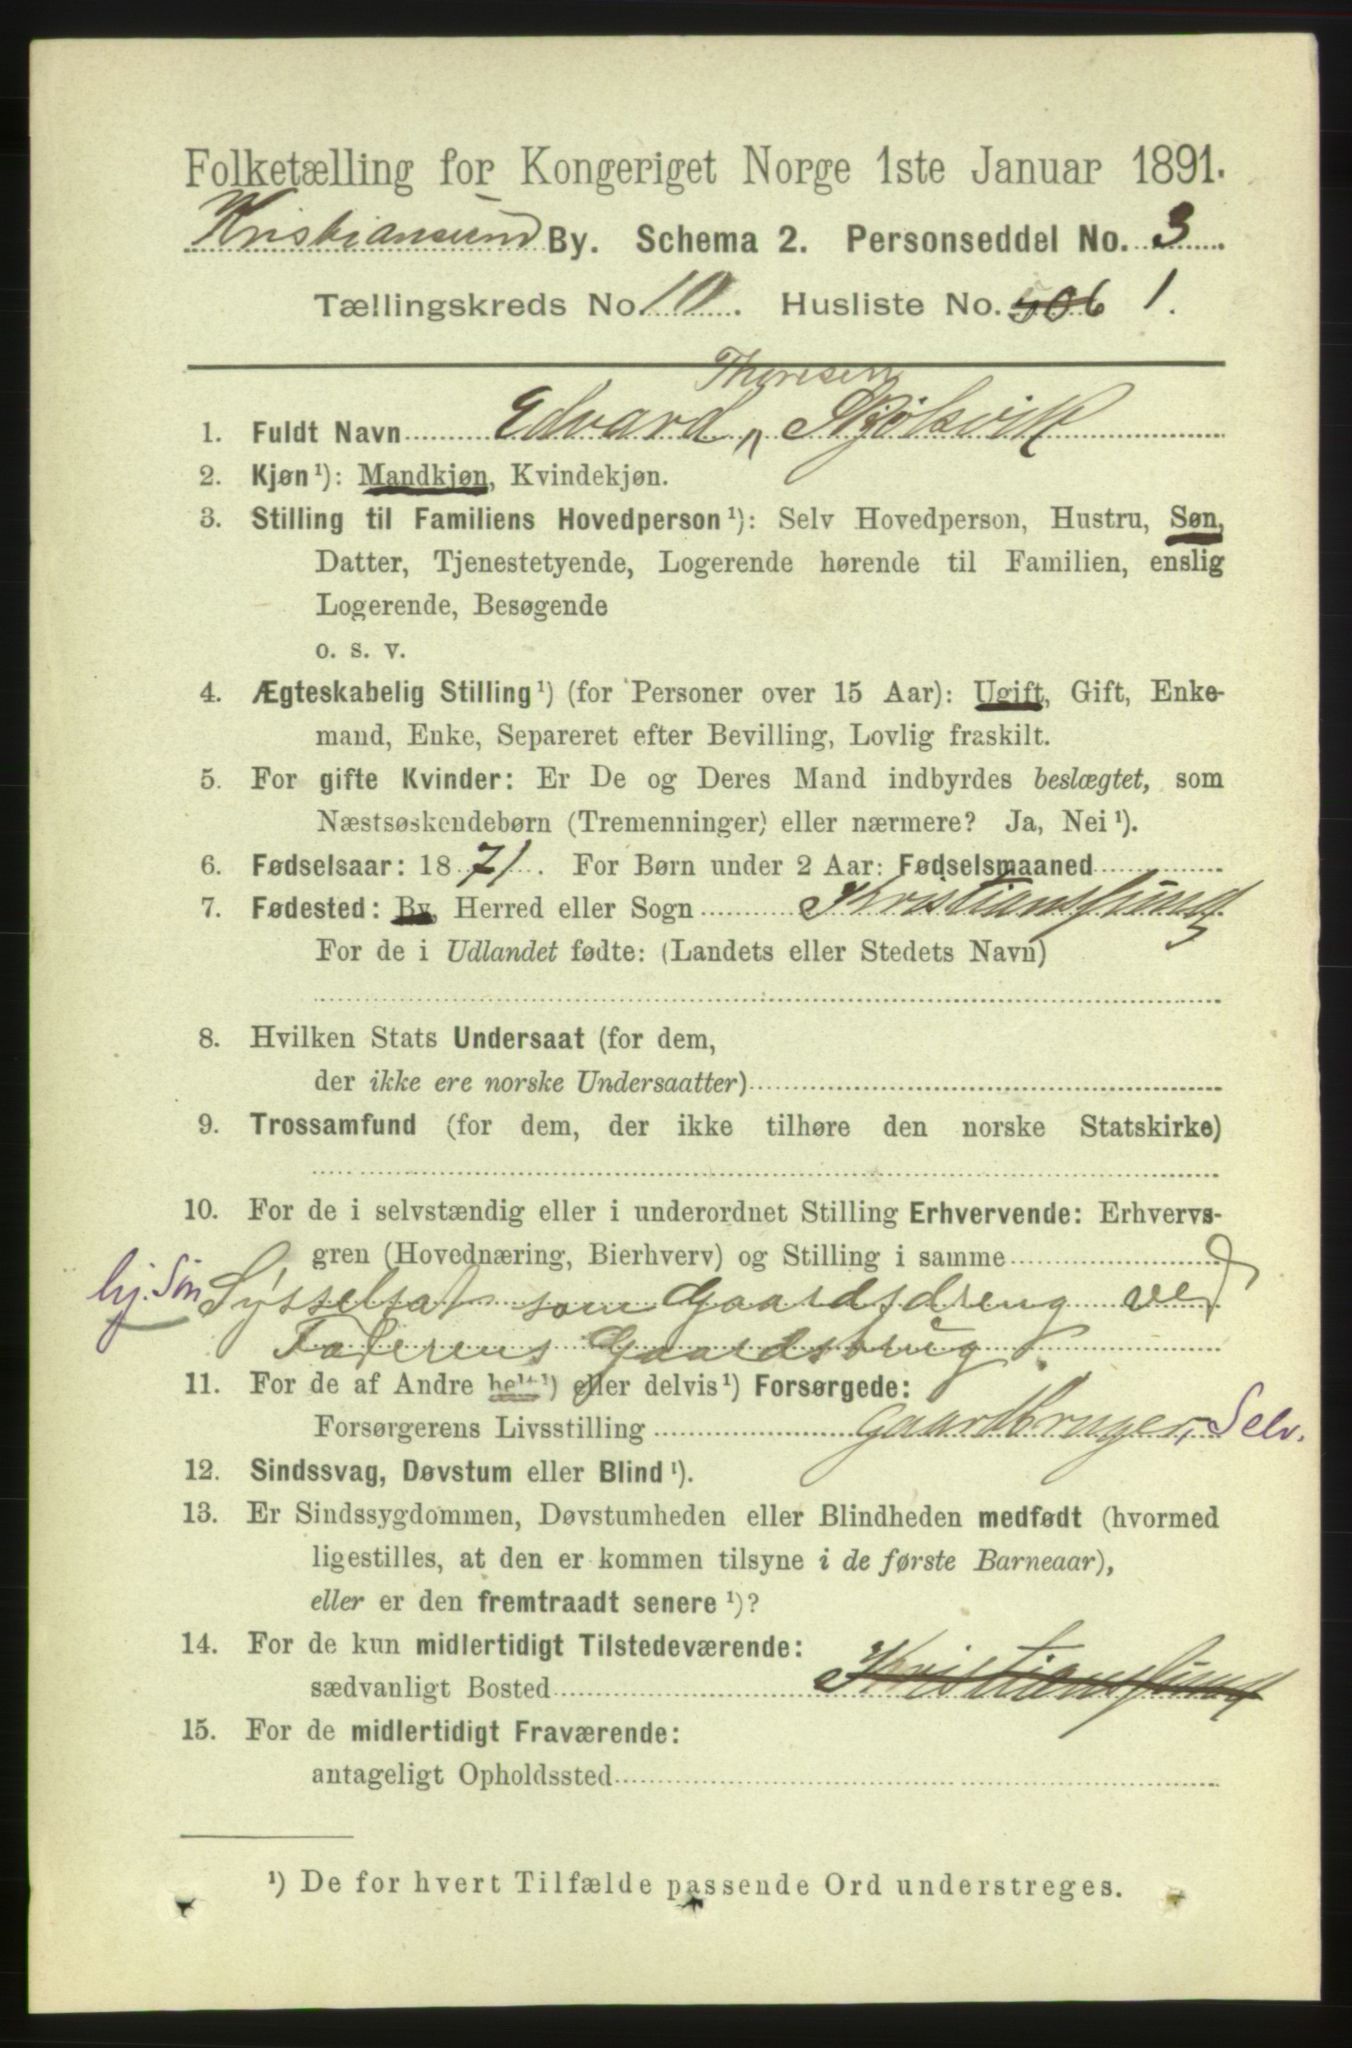 Folketælling for Kongeriget Norge 1ste Januar 1891.
Kristiansund By. Schema 2. Personseddel No. 3
Tællingskreds No. 10. Husliste No. 506 1.
Thoresen
1. Fuldt Navn Edvard Skjølsvik
2. Kjøn¹): Mandkjøn, Kvindekjøn.
3. Stilling til Familiens Hovedperson¹): Selv Hovedperson, Hustru, Søn,
Datter, Tjenestetyende, Logerende hørende til Familien, enslig
Logerende, Besøgende
o. s. v.
4. Ægteskabelig Stilling¹) (for Personer over 15 Aar): Ugift, Gift, Enke-
mand, Enke, Separeret efter Bevilling, Lovlig fraskilt.
5. For gifte Kvinder: Er De og Deres Mand indbyrdes beslægtet, som
Næstsøskendebørn (Tremenninger) eller nærmere? Ja, Nei¹).
6. Fødselsaar: 1871. For Børn under 2 Aar: Fødselsmaaned
7. Fødested: By, Herred eller Sogn Kristianssund
For de i Udlandet fødte: (Landets eller Stedets Navn)
8. Hvilken Stats Undersaat (for dem,
der ikke ere norske Undersaatter)
9. Trossamfund (for dem, der ikke tilhøre den norske Statskirke)
10. For de i selvstændig eller i underordnet Stilling Erhvervende: Erhvervs-
gren (Hovednæring, Bierhverv) og Stilling i samme
hj. Søn Sysselsat som Gaardsdreng ved
Faderens Gaardsbrug.
11. For de af Andre helt¹) eller delvis¹) Forsørgede:
Forsørgerens Livsstilling Gaardbruger, Selv.
12. Sindssvag, Døvstum eller Blind¹).
13. Er Sindssygdommen, Døvstumheden eller Blindheden medfødt (hvormed
ligestilles, at den er kommen tilsyne i de første Barneaar),
eller er den fremtraadt senere¹)?
14. For de kun midlertidigt Tilstedeværende:
sædvanligt Bosted Kristianssund
15. For de midlertidigt Fraværende:
antageligt Opholdssted
¹) De for hvert Tilfælde passende Ord understreges.